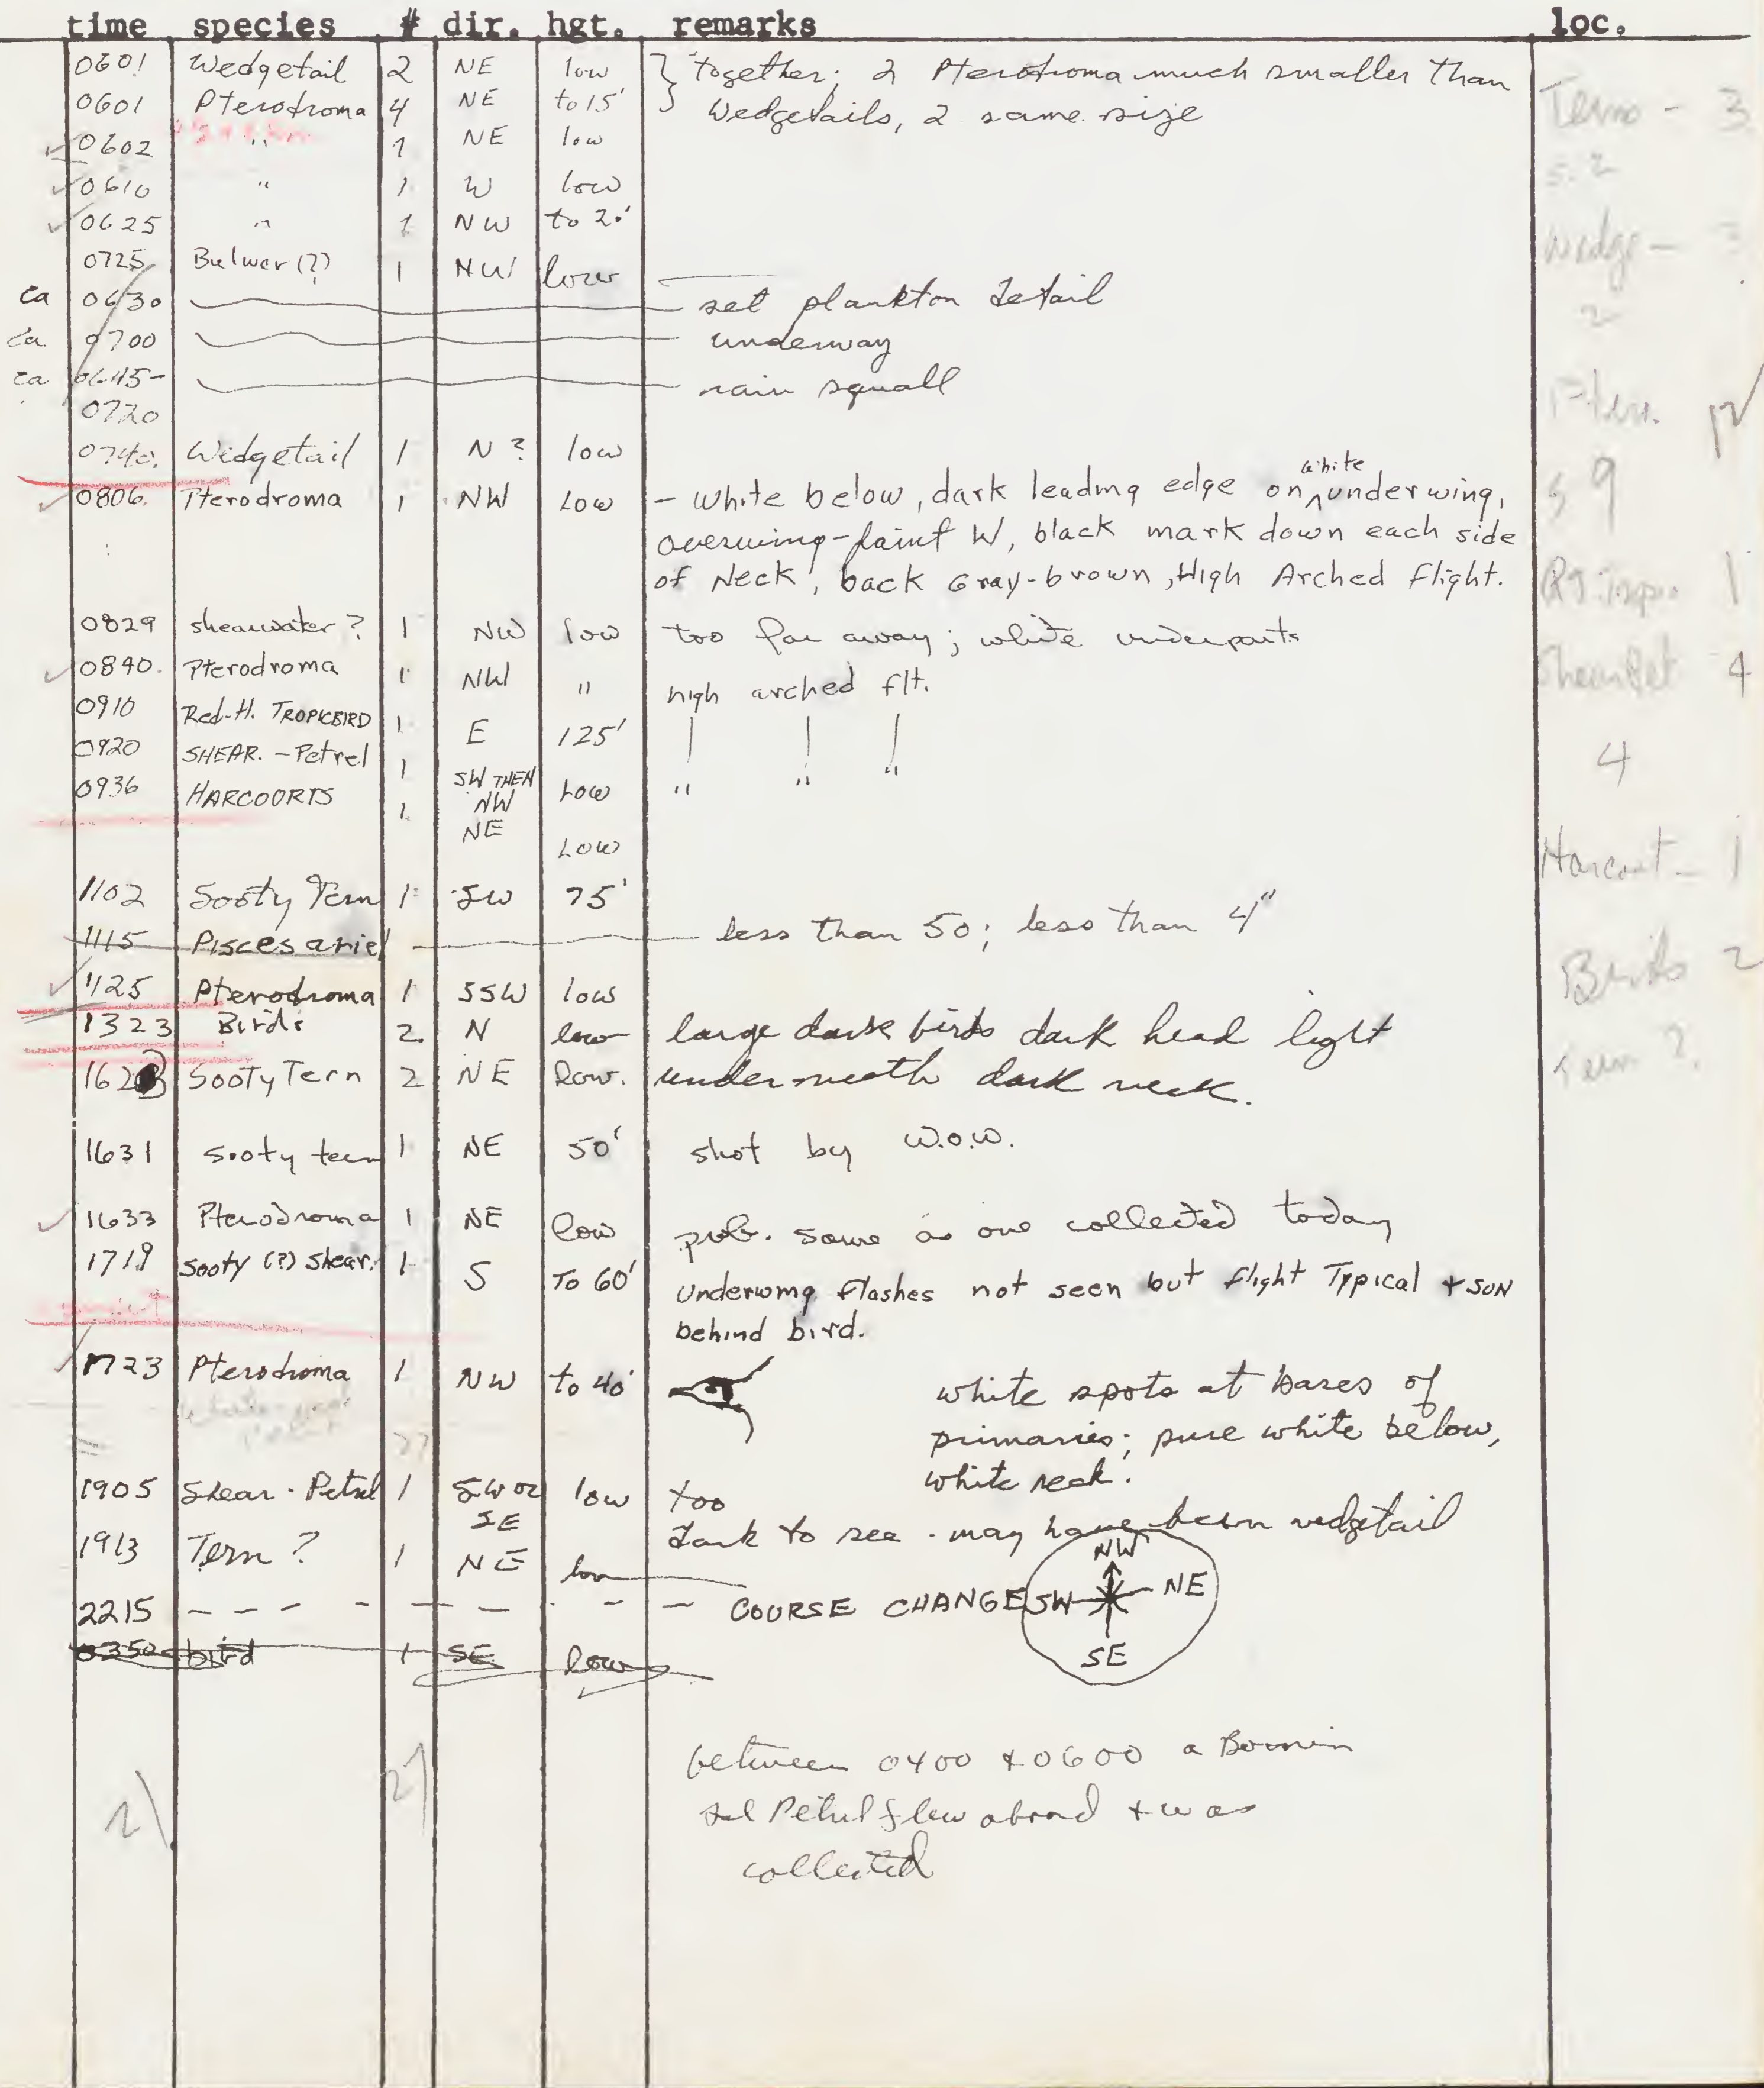 time species # dir. hgt. remarks loc.
0601 Wedgetail 2 NE low } together; 2 Pterodroma much smaller than
0601 Pterodroma 4 NE to 15' Wedgetails, 2 same size
Terns - 3
0602 " 1 NE low
0610 " 1 W low
s. 2
0625 " 1 NW to 20'
Wedge - 3
0725 Bulwer (?) 1 NW low
ca 0630 set plankton detail
2
ca 0700 underway
ca 0645- rain squall
0720
Pter. 12
0740 Wedgetail 1 N? low
0806 Pterodroma 1 NW Low - white below, dark leading edge on white underwing,
s 9
overwing-faint W, black mark down each side
of Neck, back Gray-brown, High Arched flight.
1
0829 shearwater? 1 NW low too far away; white underparts
0840 Pterodroma 1 NW " high arched flt.
Shear Pet 4
0910 Red-H. TROPICBIRD 1 E 125'
0920 SHEAR. - Petrel 1 SW THEN NW Low " " "
4
0936 HARCOURTS 1 NE Low
Harcourt - 1
1102 Sooty Tern 1 SW 75'
1115 Pisces ariel less than 50; less than 4"
Birds 2
1125 Pterodroma 1 SSW low
1323 Birds 2 N low large dark birds dark head light
Tern ?
1623 Sooty Tern 2 NE low. underneath dark neck.
1631 Sooty tern 1 NE 50' shot by W.O.W.
1633 Pterodroma 1 NE low prob. same as one collected today
1719 Sooty (?) Shear. 1 S To 60' Underwing flashes not seen but flight Typical + SUN
behind bird.
1723 Pterodroma 1 NW to 40' white spots at bases of
primaries; pure white below,
white neck.
1905 Shear - Petrel 1 SW or SE low too
dark to see - may have been wedgetail
1913 Tern ? 1 NE low
NW
2215 - - - - - - - - COURSE CHANGE SW NE
SE
0350 bird 1 SE low
between 0400 + 0600 a Bonin
Isl Petrel flew abord + was
21 27
collected